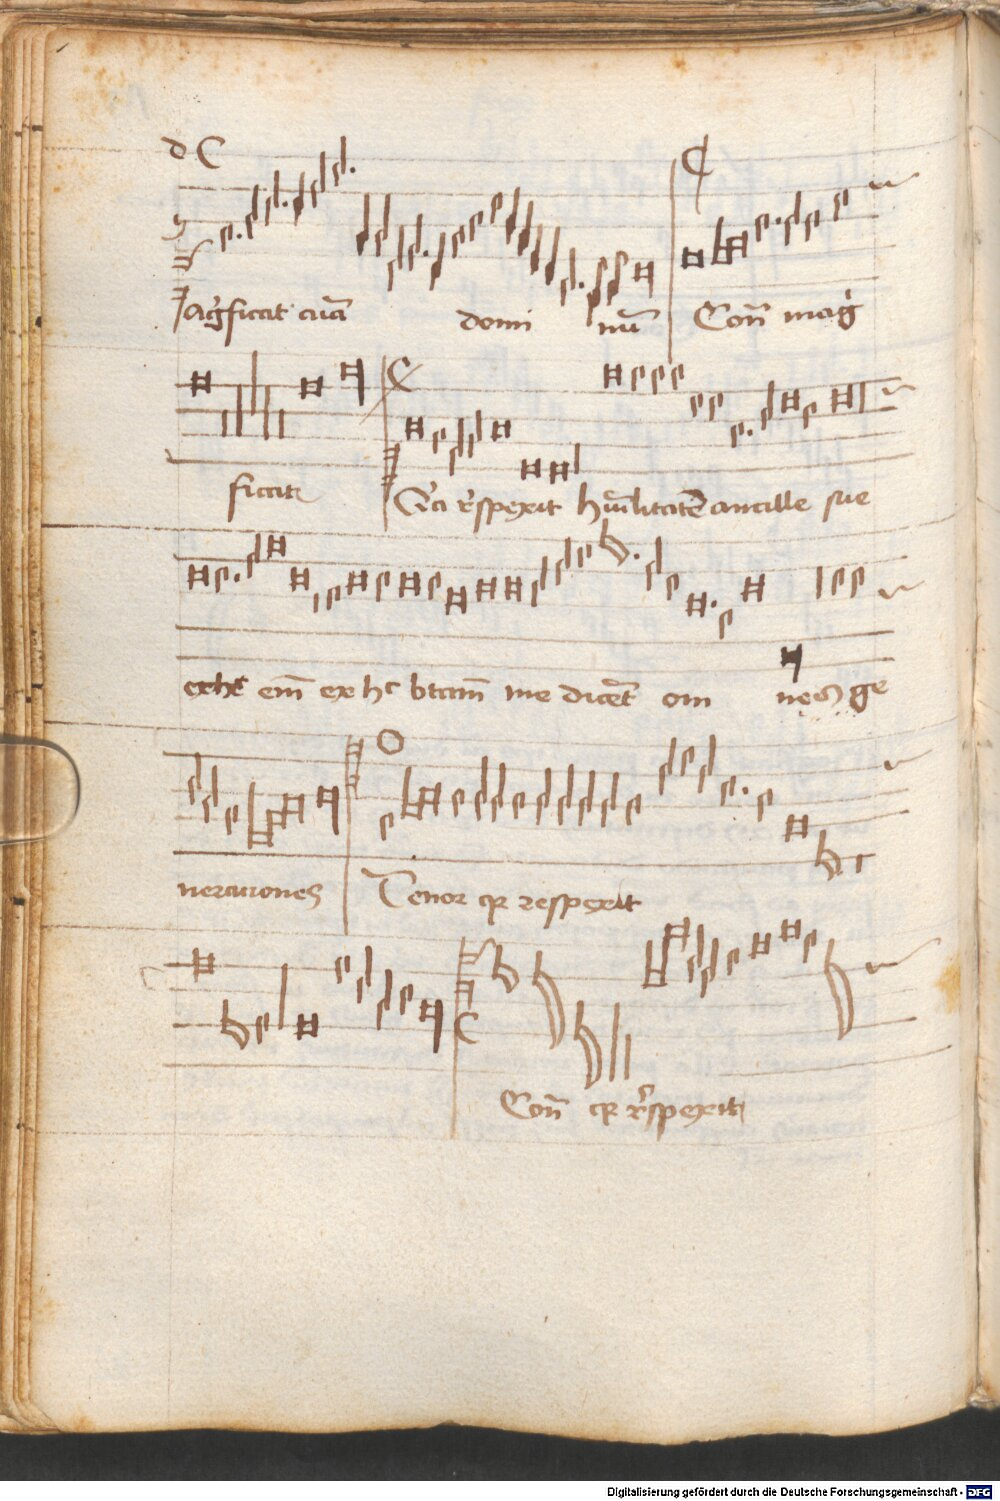 ag̅ficat aīa domi nū Con̄ mag̅
ficat
Q̅ia r̅spexit hūilitatē ancille sue
ex hc em̄ ex hc btam̄ me dicēt om nes ge
neraciones Tenor qr respexit
Con̄ qr r̅spexit
Digitalisierung gefördert durch die Deutsche Forschungsgemeinschaft - DFG